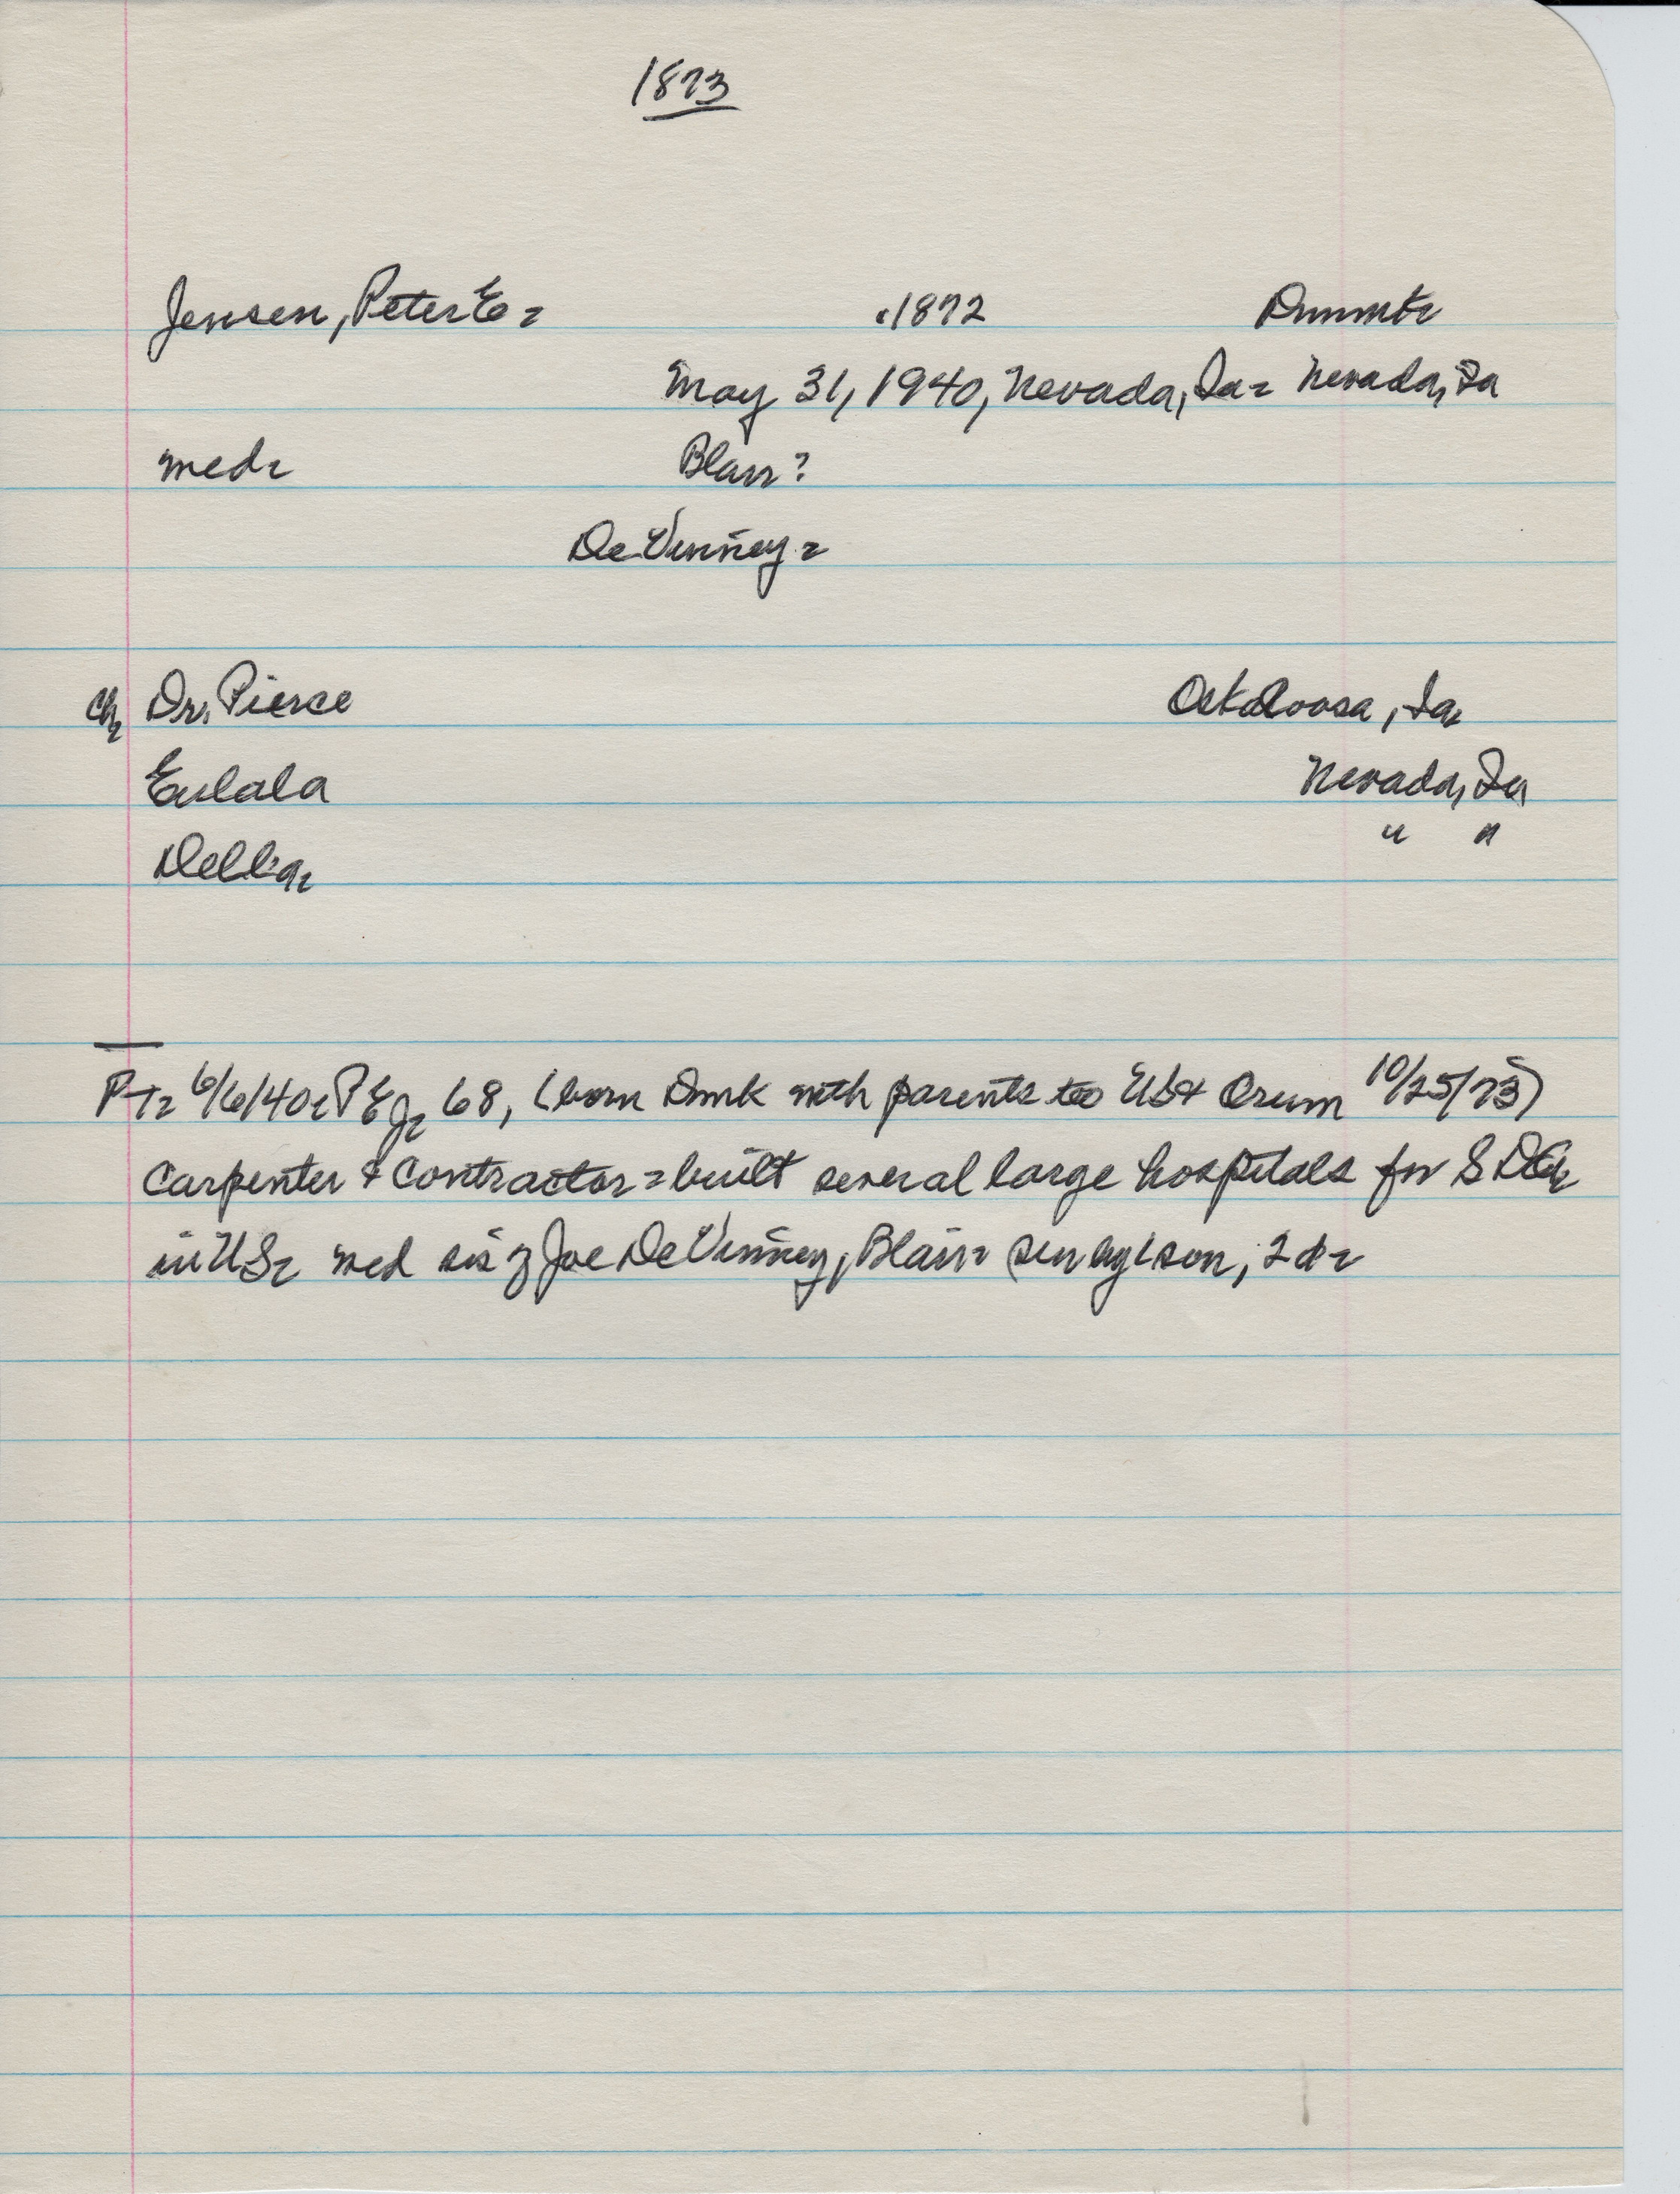 1873
Jensen, Peter E. c.1872 Dnmk.
May 31, 1940, Nevada, Ia. Nevada, Ia
med. Blair?
DeVinney.
ch. Dr. Pierce Oskaloosa, Ia.
Eulala Nevada, Ia
Della. " "
PT. 6/6/40. PEJ. 68, (born Dnmk with parents to US & Orum 10/25/73)
Carpenter & Contractor. built several large hospitals for SDA.
in US. med sis of Joe DeVinney, Blair. son, 2 d.